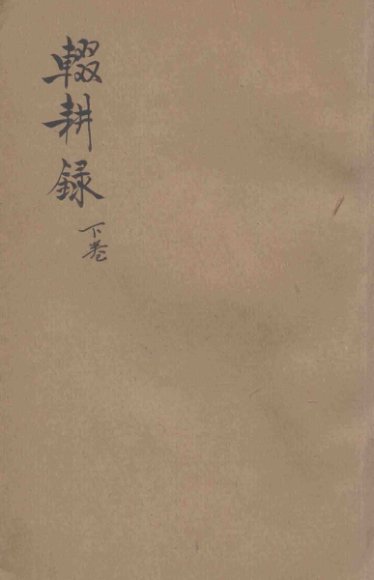 輟耕録
下卷